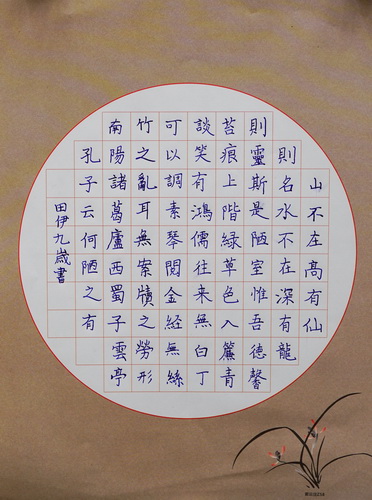 山不在高有仙
則名水不在深有龍
則靈斯是陋室惟吾德馨
苔痕上階綠草色入簾青
談笑有鴻儒往来無白丁
可以調素琴閱金経無絲
竹之亂耳無案牘之勞形
南陽諸葛廬西蜀子雲亭
孔子云何陋之有
田伊九歲書